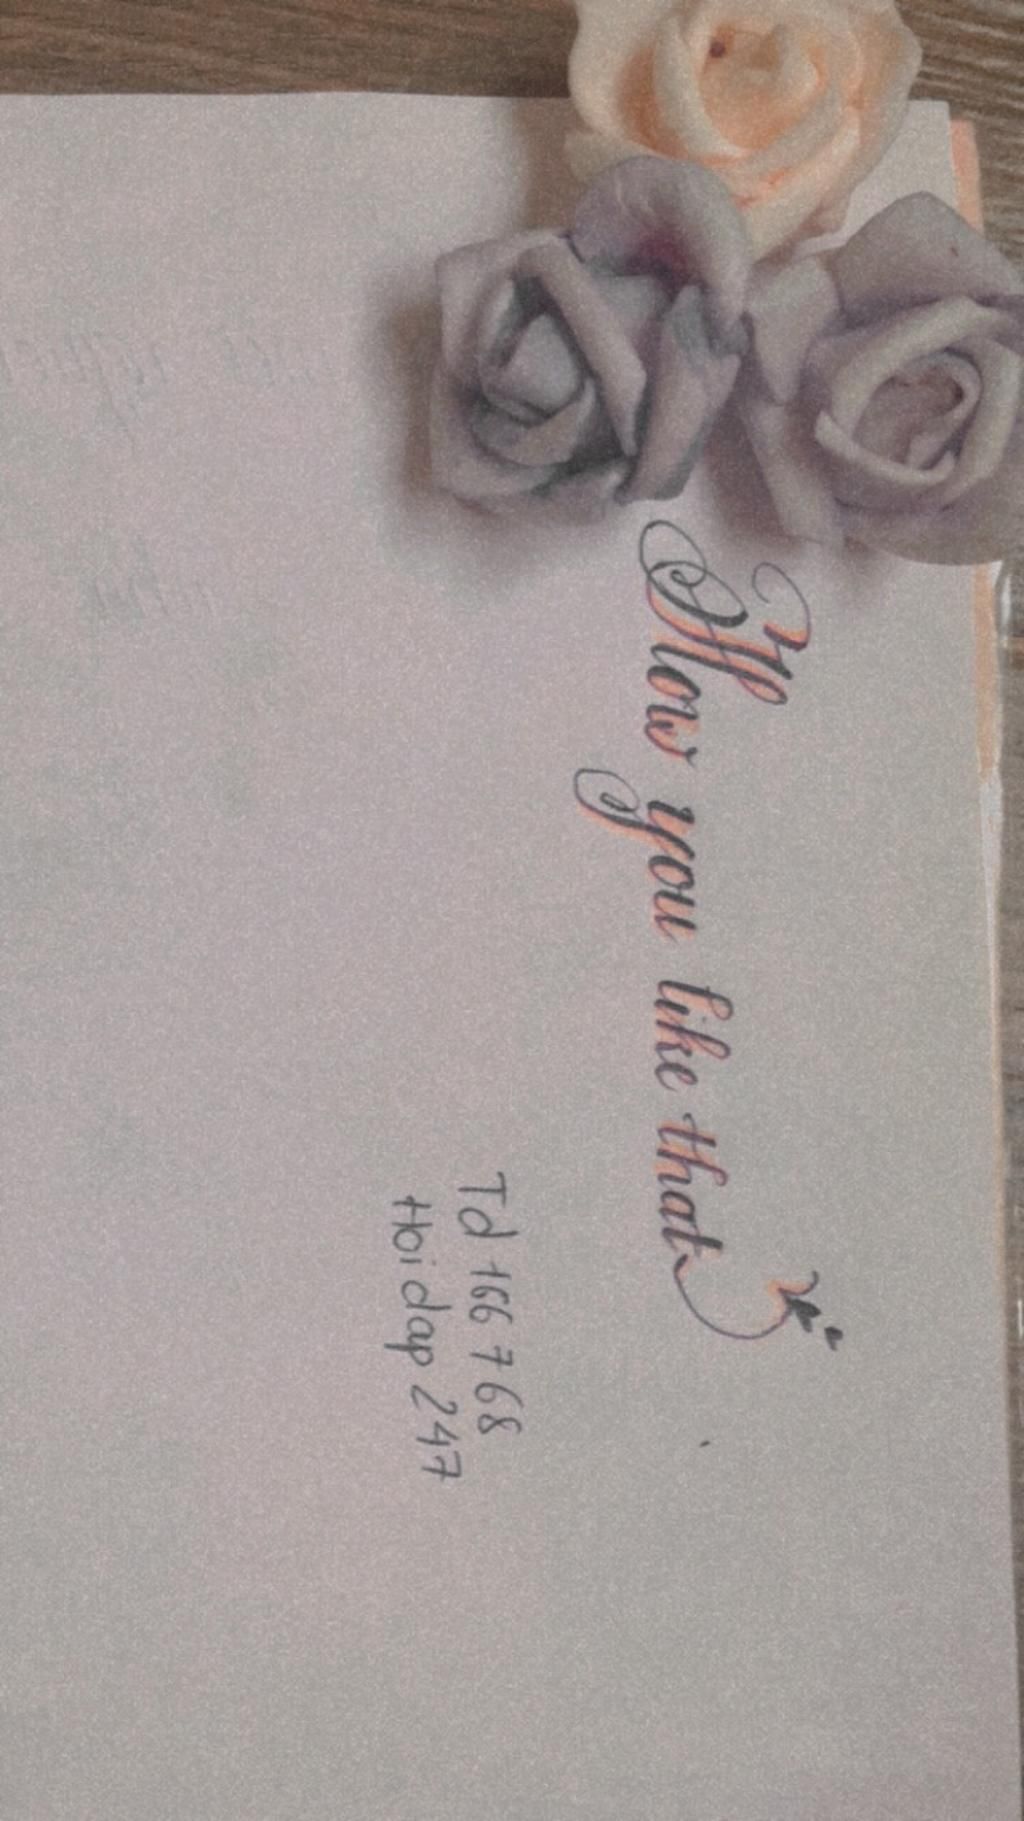 How you like that
Td 166 768
Hoidap 247